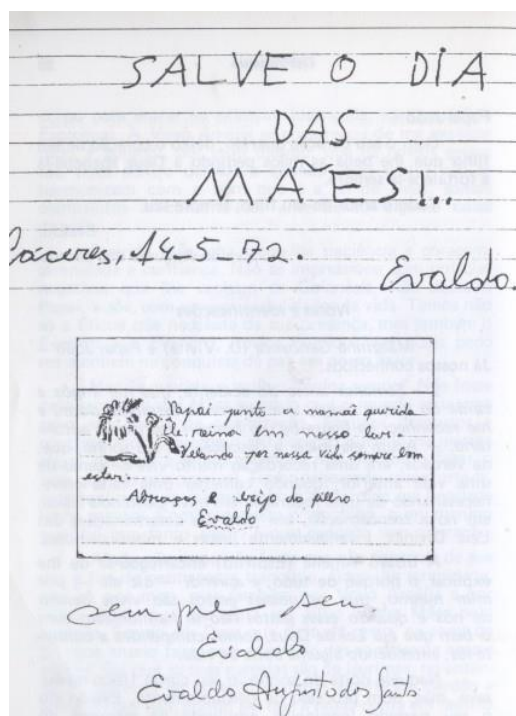 SALVE O DIA
DAS
MÃES...
Cáceres, 14-5-72.
Evaldo.
Papai junto a mamãe querida
é raina em nosso lar.
Velando por nossa vida sempre em
Abraços e beijo do filho
Evaldo
sempre seu
Evaldo
Evaldo Augusto dos Santos